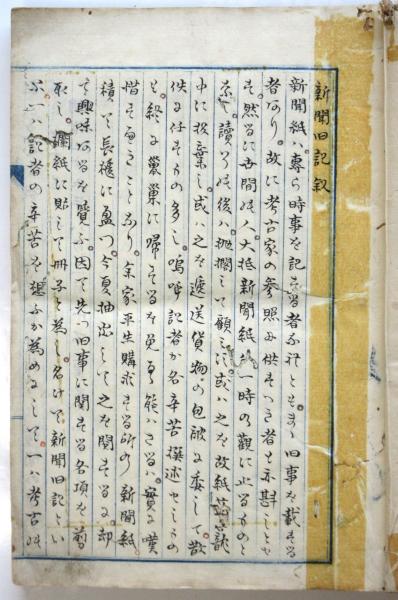 新聞旧記叙
新聞紙ハ専ら時事を記する者なれとも、まゝ旧事を載する
者あり。故に考古家の参照に供すへき者も亦尠しとせ
す。然るに世間の人、大抵新聞紙ハ一時の観に止るものと
なし、読了る後ハ抛擱して顧みす、或ハ之を故紙
中に投棄し、或ハ之を逓送貨物の包被に委して散
佚に任するもの多し。嗚呼記者か名辛苦撰述せしもの
も、終に巣に帰するを免る能ハさるハ、実に嘆
惜すへきことなり。余家平生購求する所の新聞紙、
積て長櫃に盈つ。今夏抽出して之を閲するに、却
て興味あるを覚ふ。因て先つ旧事に関する各項を剪
取し、紙に貼して冊子と為し、名けて新聞旧記とい
ふ。一ハ記者の辛苦を想ふか為めにして、一ハ考古